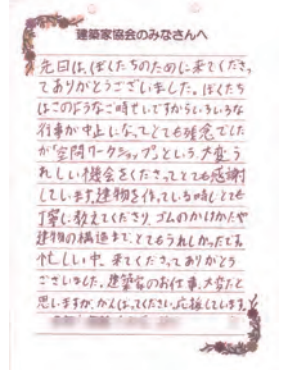 建築家協会のみなさんへ
先日は、ぼくたちのために来てくださっ
てありがとうございました。ぼくたち
はこのようなご時せいですからいろいろな
行事が中止になってとても残念でした
が「空間ワークショップ」という、大変う
れしい機会をくださってとても感謝
しています。建物を作っている時もとても
丁寧に教えてくださり、ゴムのかけかたや
建物の構造まで、とてもうれしかったです。
忙しい中、来てくださってありがとう
ございました。建築家のお仕事、大変だと
思いますが、がんばってください。応援しています。